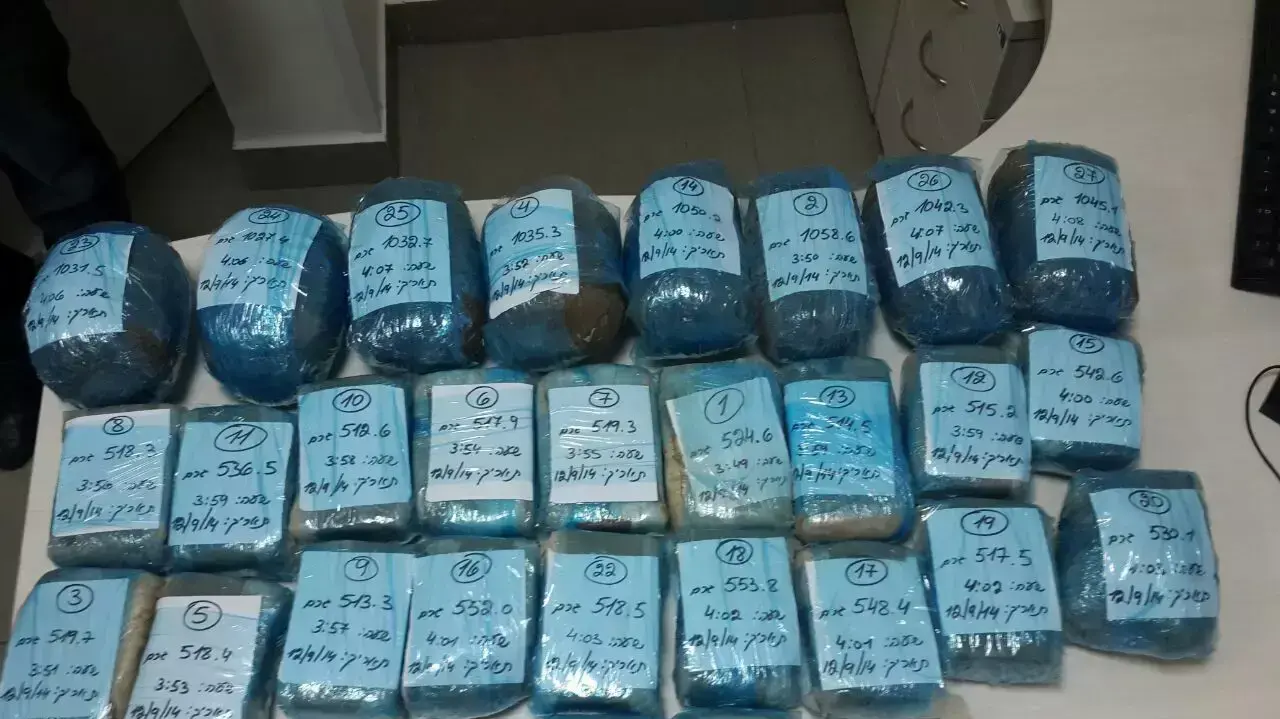 23
1031.5 גרם
שעה: 4:06
תאריך: 12/9/14
24
1027.4 גרם
שעה: 4:06
תאריך: 12/9/14
25
1032.7 גרם
שעה: 4:07
תאריך: 12/9/14
4
1035.3 גרם
שעה: 3:52
תאריך: 12/9/14
14
1050.2 גרם
שעה: 4:00
תאריך: 12/9/14
2
1058.6 גרם
שעה: 3:50
תאריך: 12/9/14
26
1042.3 גרם
שעה: 4:07
תאריך: 12/9/14
27
1045.1 גרם
שעה: 4:08
תאריך: 12/9/14
8
518.3 גרם
שעה: 3:56
תאריך: 12/9/14
11
536.5 גרם
שעה: 3:59
תאריך: 12/9/14
10
512.6 גרם
שעה: 3:58
תאריך: 12/9/14
6
517.9 גרם
שעה: 3:54
תאריך: 12/9/14
7
519.3 גרם
שעה: 3:55
תאריך: 12/9/14
1
524.6 גרם
שעה: 3:49
תאריך: 12/9/14
13
514.5 גרם
שעה: 3:59
תאריך: 12/9/14
12
515.2 גרם
שעה: 3:59
תאריך: 12/9/14
15
542.6 גרם
שעה: 4:00
תאריך: 12/9/14
3
519.7 גרם
שעה: 3:51
תאריך: 12/9/14
5
518.4 גרם
שעה: 3:53
תאריך: 12/9/14
9
513.3 גרם
שעה: 3:57
תאריך: 12/9/14
16
552.0 גרם
שעה: 4:01
תאריך: 12/9/14
22
518.5 גרם
שעה: 4:03
תאריך: 12/9/14
18
553.8 גרם
שעה: 4:02
תאריך: 12/9/14
17
548.4 גרם
שעה: 4:01
תאריך: 12/9/14
19
517.5 גרם
שעה: 4:02
תאריך: 12/9/14
20
530.1 גרם
שעה: 4:03
תאריך: 12/9/14